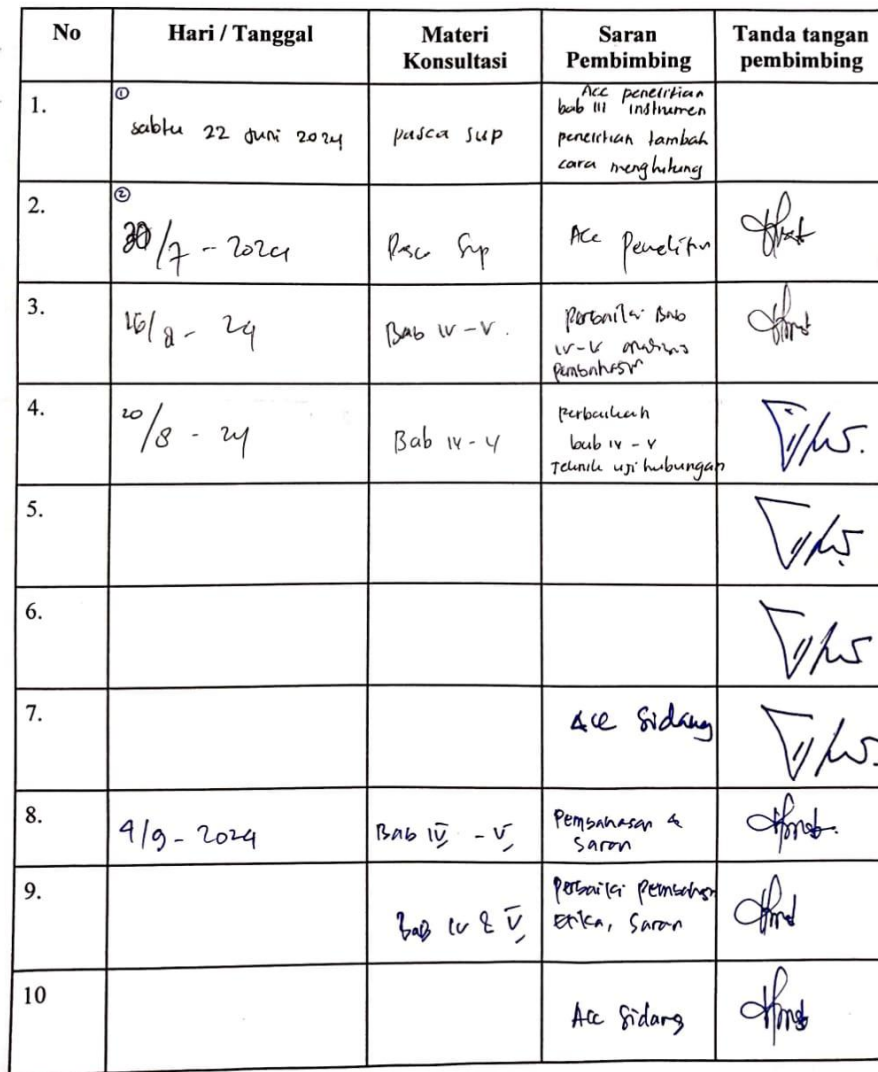 No Hari / Tanggal Materi Konsultasi Saran Pembimbing Tanda tangan pembimbing
1. ① sabtu 22 Juni 2024 pasca sup Acc penelitian bab III instrumen penelitian tambah cara menghitung
2. ② 30/7 - 2024 Pasca Sup Acc Penelitian
3. 16/8 - 24 Bab IV - V. Perbaiki Bab IV - V pembahasan
4. 20/8 - 24 Bab IV - V Perbaikan bab IV - V Teknik uji hubungan
5.
6.
7. Acc Sidang
8. 4/9 - 2024 Bab IV - V Pembahasan & Saran
9. Bab IV & V Perbaiki Pembahasan Etika, Saran
10 Acc Sidang